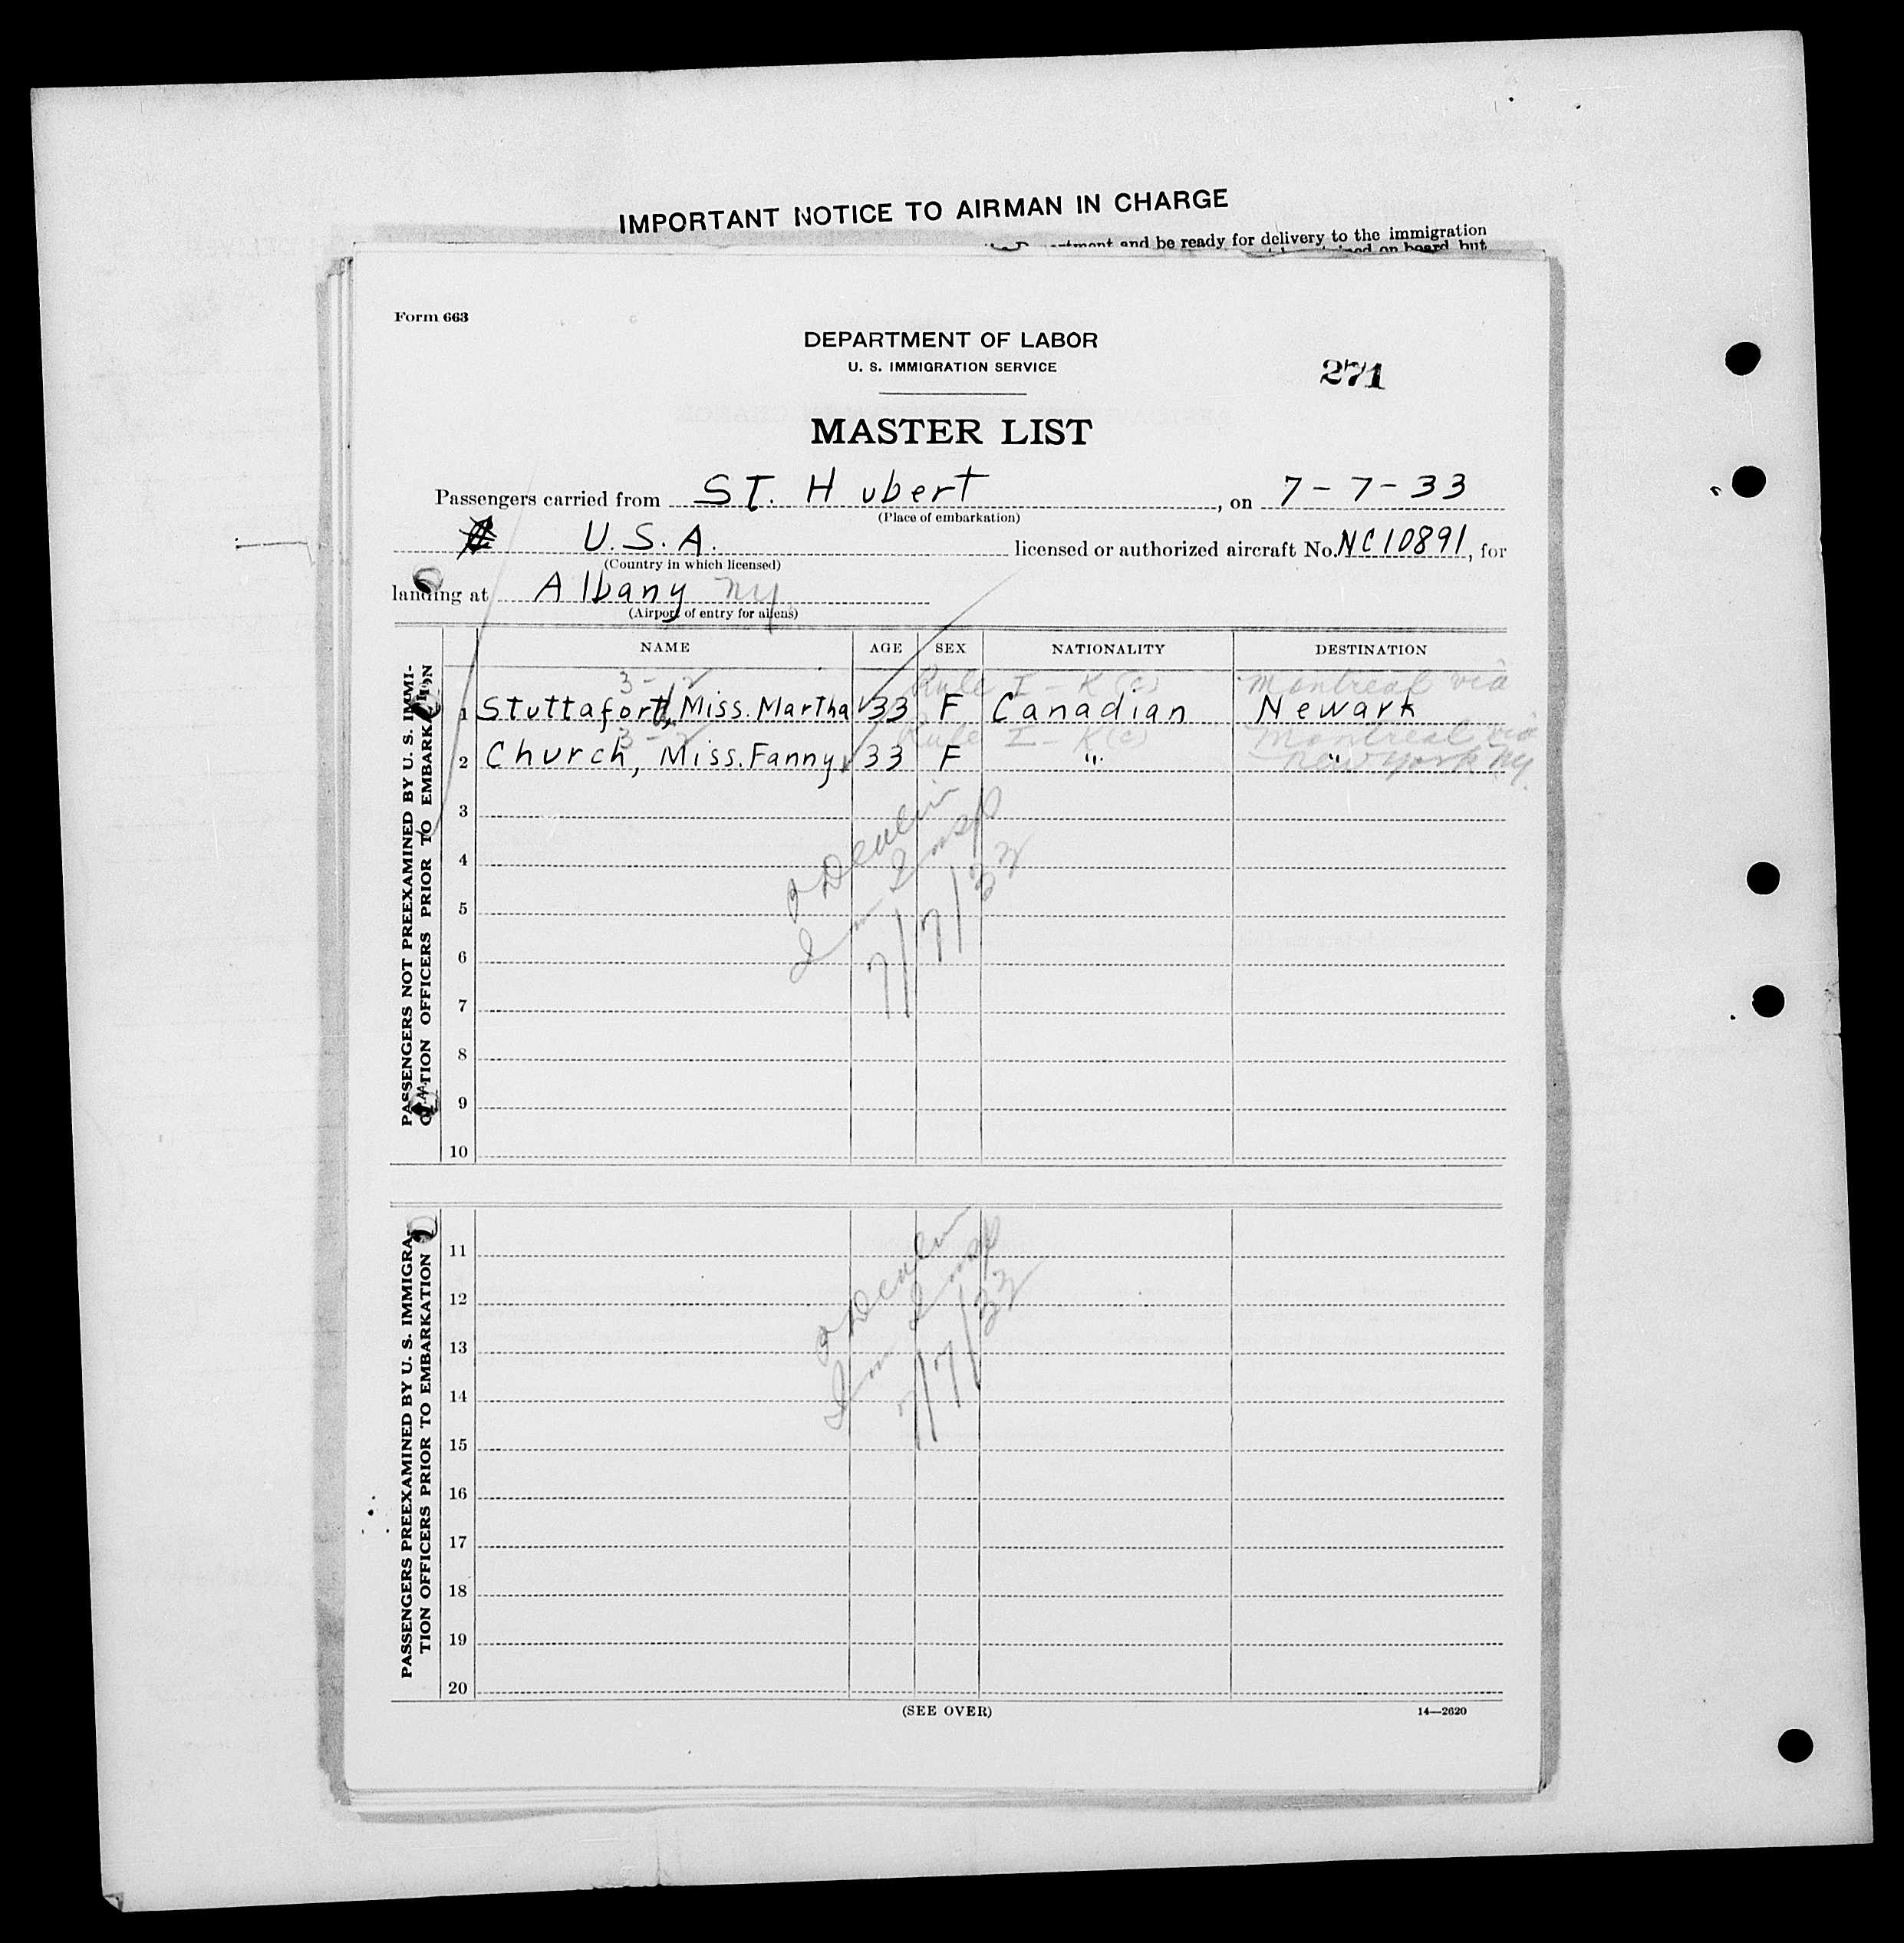 IMPORTANT NOTICE TO AIRMAN IN CHARGE
and be ready for delivery to the immigration
on board, but
Form 663
DEPARTMENT OF LABOR
U. S. IMMIGRATION SERVICE
271
MASTER LIST
Passengers carried from ST. Hubert, on 7-7-33
(Place of embarkation)
U.S.A. licensed or authorized aircraft No. NC10891, for
(Country in which licensed)
landing at Albany NY.
(Airport of entry for aliens)
PASSENGERS NOT PREEXAMINED BY U. S. IMMI-
GRATION OFFICERS PRIOR TO EMBARKATION
NAME AGE SEX NATIONALITY DESTINATION
3- Rule I-K(c) Montreal via
1 Stuttaford, Miss. Martha 33 F Canadian Newark
3- Rule I-K(c) Montreal via
2 Church, Miss. Fanny 33 F " " New York NY.
3
4
5
6
7
8
9
10
Imm Insp
7/7/33
PASSENGERS PREEXAMINED BY U. S. IMMIGRA-
TION OFFICERS PRIOR TO EMBARKATION
11
12
13
14
15
16
17
18
19
20
Imm Insp
7/7/33
(SEE OVER)
14—2620